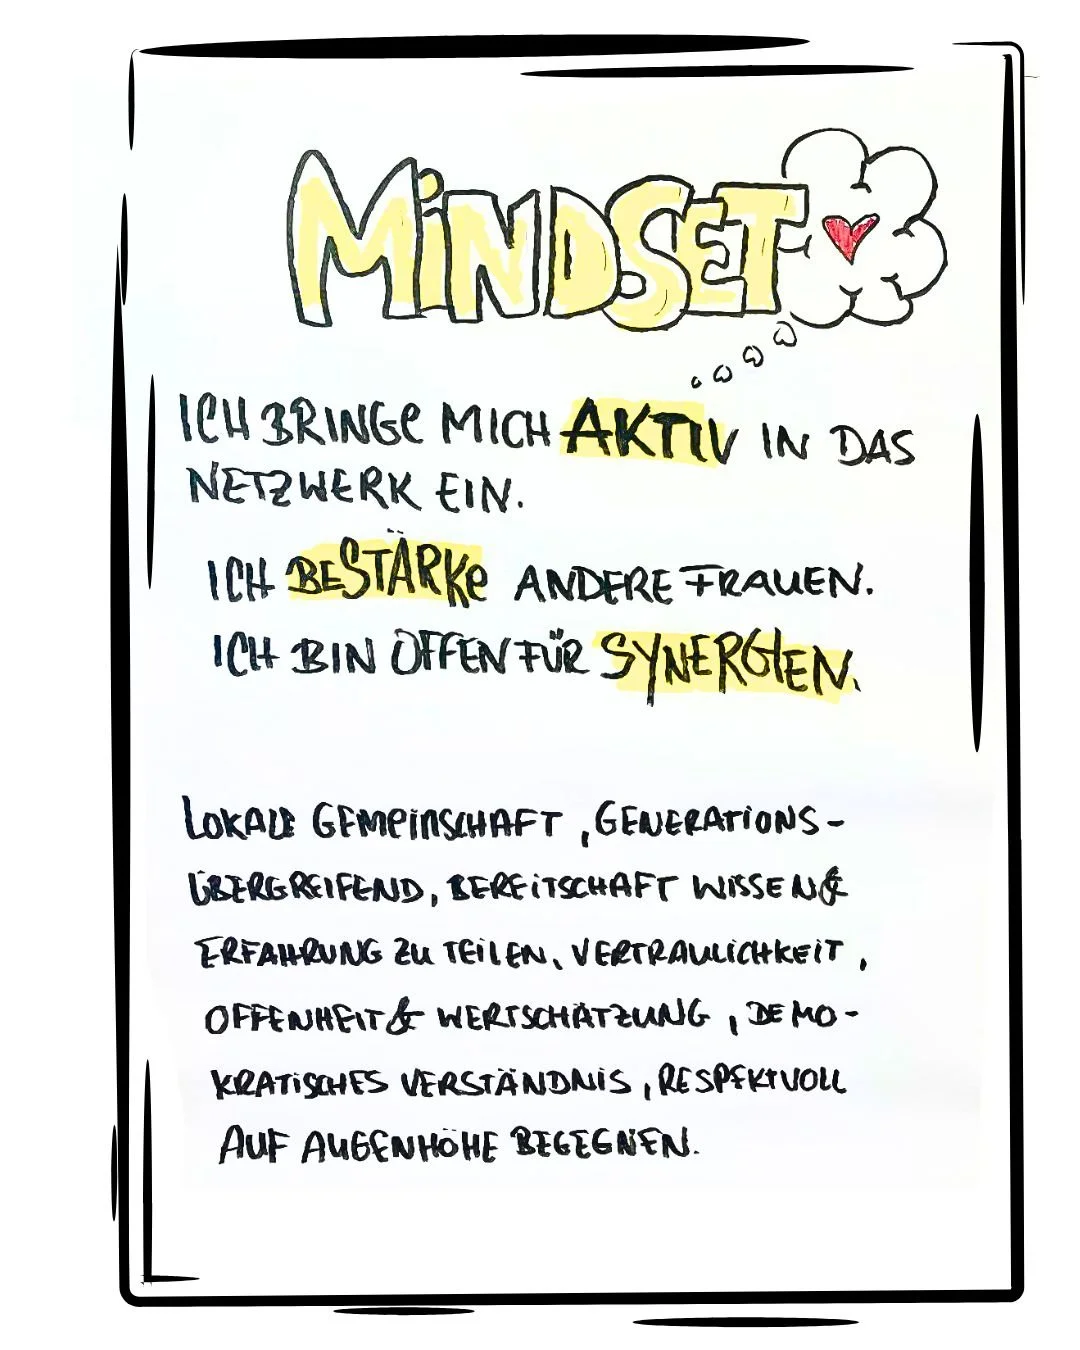 MiNDSET
ICH BRINGE MICH AKTIV IN DAS
NETZWERK EIN.
ICH BESTÄRKE ANDERE FRAUEN.
ICH BIN OFFEN FÜR SYNERGIEN.
LOKALE GEMEINSCHAFT, GENERATIONS-
ÜBERGREIFEND, BEREITSCHAFT WISSEN &
ERFAHRUNG ZU TEILEN, VERTRAULICHKEIT,
OFFENHEIT & WERTSCHÄTZUNG, DEMO-
KRATISCHES VERSTÄNDNIS, RESPEKTVOLL
AUF AUGENHÖHE BEGEGNEN.